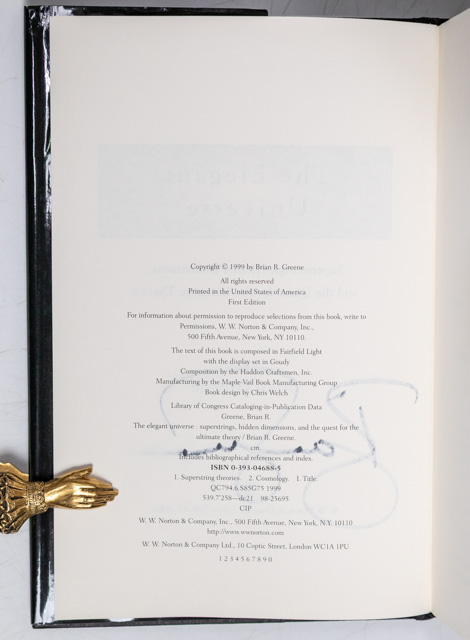 Copyright © 1999 by Brian R. Greene
All rights reserved
Printed in the United States of America
First Edition
For information about permission to reproduce selections from this book, write to
Permissions, W. W. Norton & Company, Inc.,
500 Fifth Avenue, New York, NY 10110.
The text of this book is composed in Fairfield Light
with the display set in Goudy
Composition by the Haddon Craftsmen, Inc.
Manufacturing by the Maple-Vail Book Manufacturing Group
Book design by Chris Welch
Library of Congress Cataloging-in-Publication Data
Greene, Brian R.
The elegant universe : superstrings, hidden dimensions, and the quest for the
ultimate theory / Brian R. Greene.
cm.
Includes bibliographical references and index.
ISBN 0-393-04688-5
1. Superstring theories. 2. Cosmology. I. Title.
QC794.6.S85G75 1999
539.7'258—dc21 98-25695
CIP
W. W. Norton & Company, Inc., 500 Fifth Avenue, New York, N.Y. 10110
http://www.wwnorton.com
W. W. Norton & Company Ltd., 10 Coptic Street, London WC1A 1PU
1 2 3 4 5 6 7 8 9 0